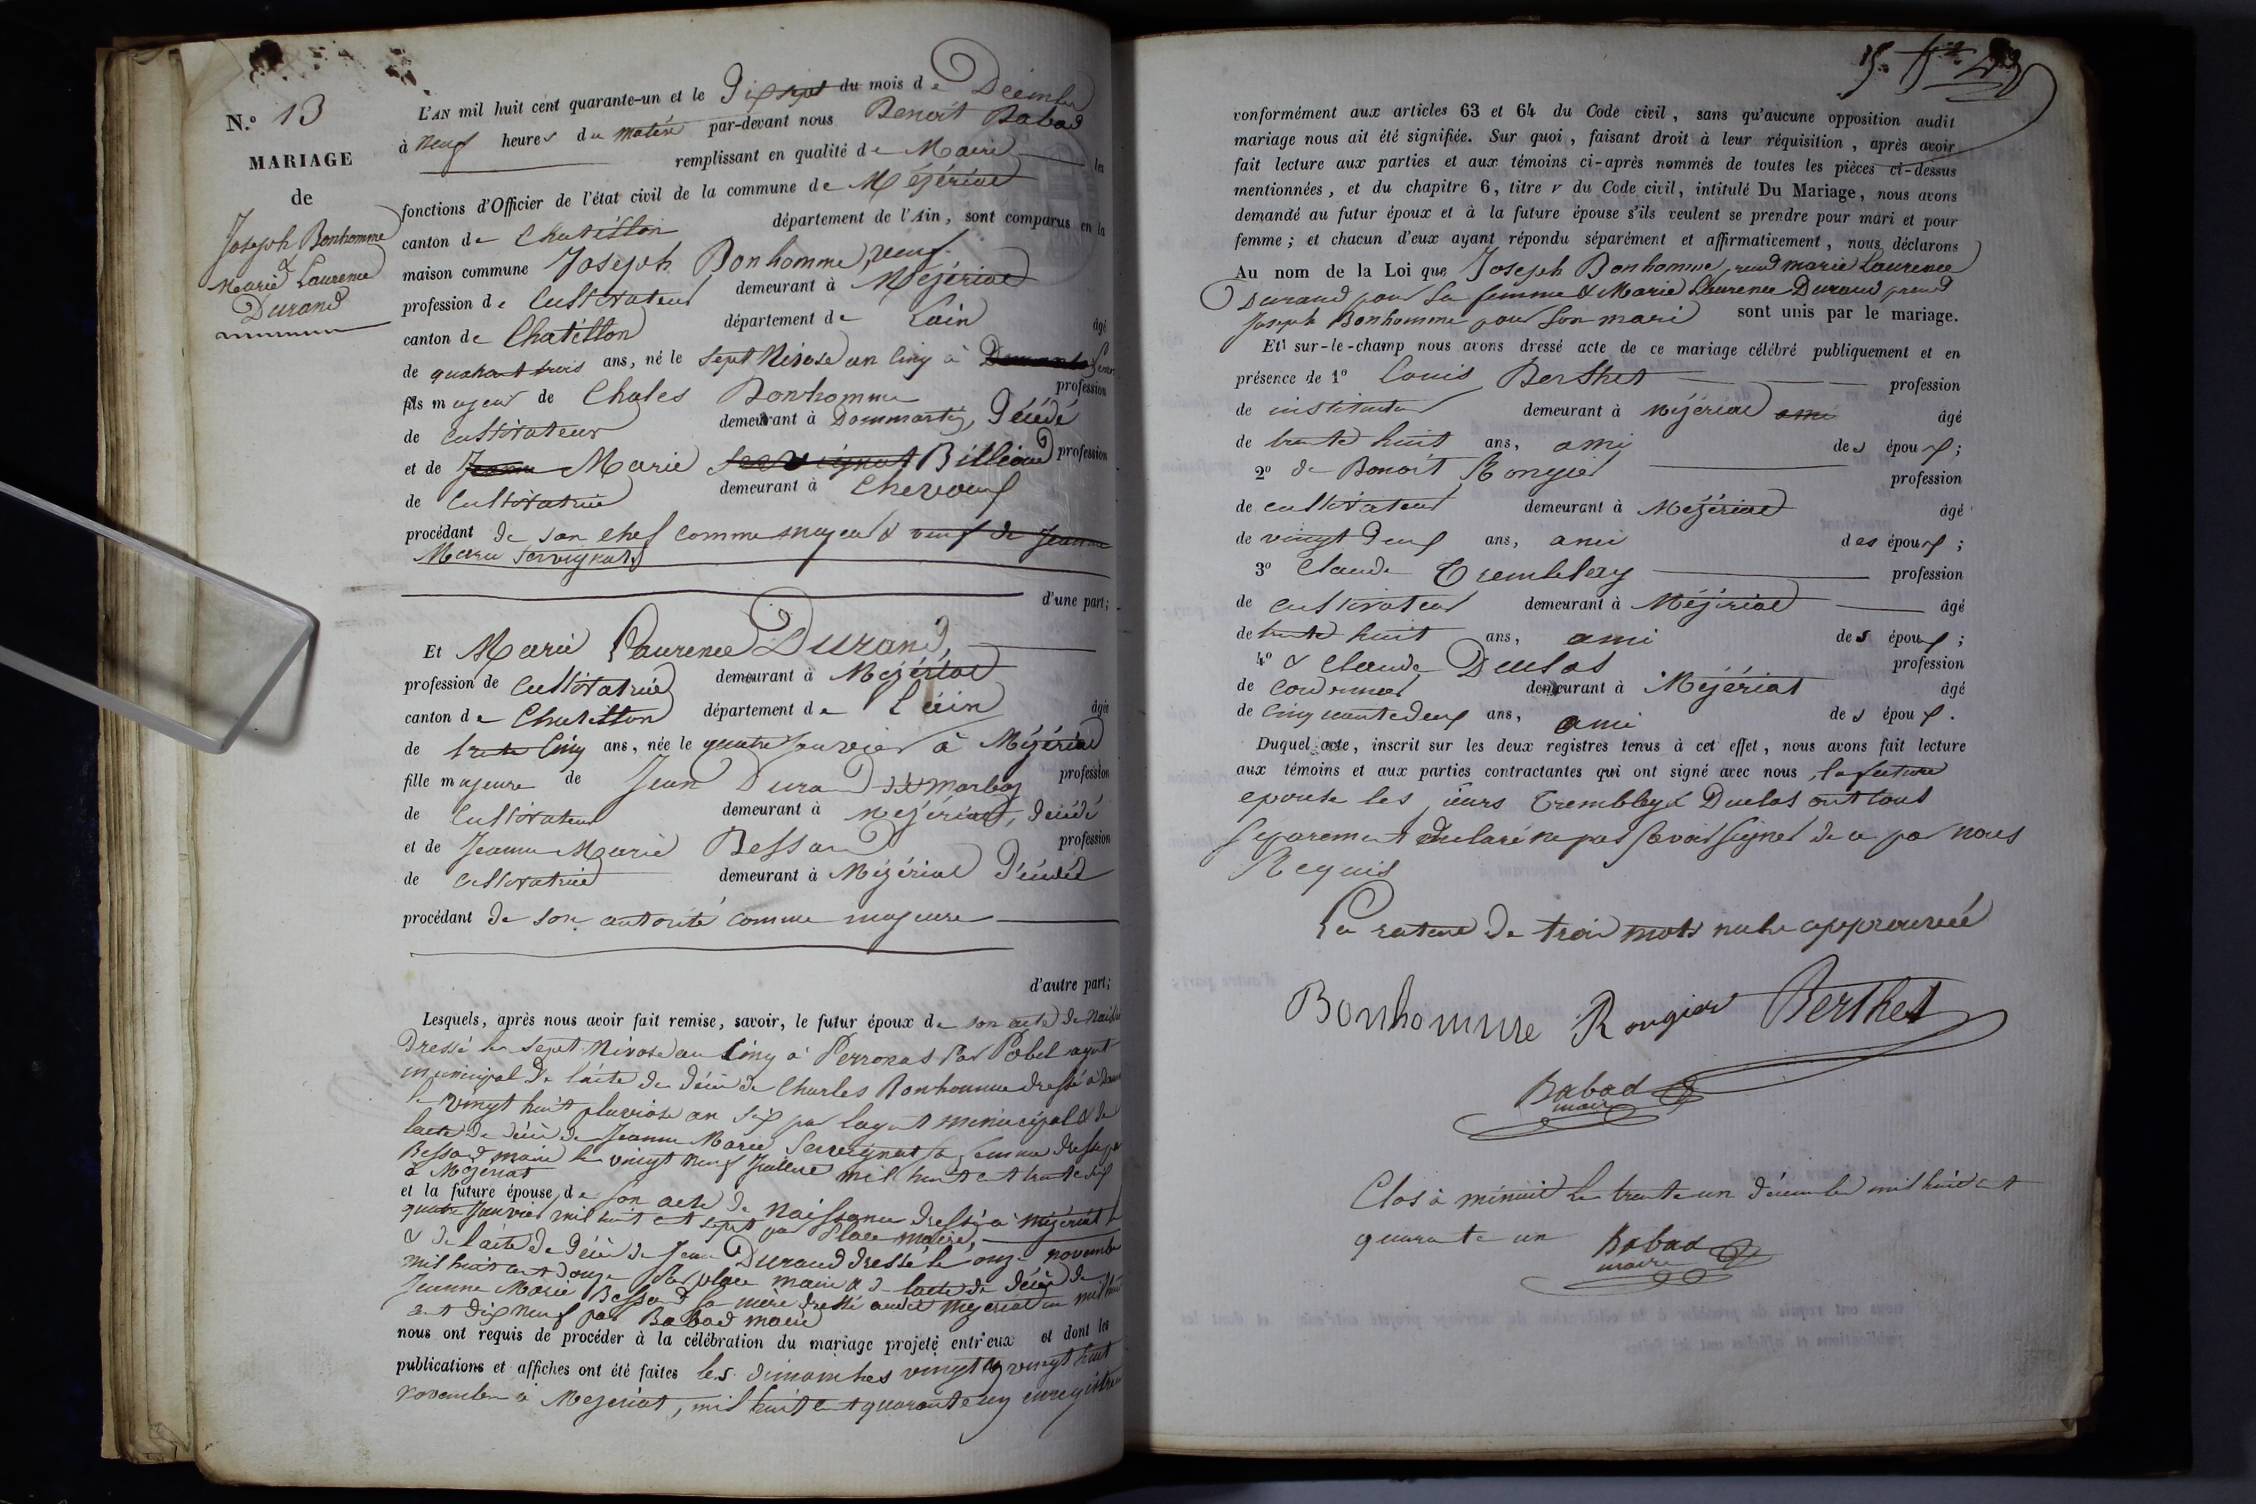 N.º 13
MARIAGE
de
Joseph Bonhomme
&
Marie Laurence
Durand
L'AN mil huit cent quarante-un et le Dix sept du mois de Décembre
à neuf heures du matin par-devant nous Benoit Babad
remplissant en qualité de Maire les
fonctions d'Officier de l'état civil de la commune de Mézériat
canton de Chatillon département de l'Ain, sont comparus en la
maison commune Joseph Bonhomme, veuf
profession de Cultivateur demeurant à Mézériat
canton de Chatillon département de Lain âgé
de quarant trois ans, né le sept Nivose an Cinq à
fils majeur de Chales Bonhomme profession
de Cultivateur demeurant à Dommartin, Décédé
et de Jeanne Marie Servignat Billioud profession
de Cultivatrice demeurant à Cheveroux
procédant de son chef comme majeur & veuf de Jeanne
Marie Servignat
d'une part;
Et Marie Laurence Durand,
profession de Cultivatrice demeurant à Mézériat
canton de Chatillon département de Lain âgée
de trente Cinq ans, née le quatre Janvier à Mézériat
fille majeure de Jean Durand profession
de Cultivateur demeurant à Mézériat, décédé
et de Jeanne Marie Bessard profession
de Cultivatrice demeurant à Mézériat Décédée
procédant de son autorité comme majeure
d'autre part;
Lesquels, après nous avoir fait remise, savoir, le futur époux de son acte de Naissa
Dressé le sept Nivose an Cinq à Perronas Par Pobel agent
municipal De l'acte de décès de Charles Bonhomme dressé à
le vingt huit pluviose an six par lagent municipal & de
lacte de décès de Jeanne Marie Servignat sa femme dressé par
Bessard maire le vingt neuf Juillet mil huit cent trente
à Mézériat
et la future épouse, de son acte de Naissance dressé à Mézériat le
quatre Janvier mil huit cent sept par Place maire,
& de l'acte de Décès de Jean Durand dressé le onze novembre
mil huit cent douze Par place maire & de lacte de décès de
Jeanne Marie Bessard sa mère dressé audit Mezeriat en mil huit
cent dix neuf par Babad maire
nous ont requis de procéder à la célébration du mariage projeté entr'eux et dont les
publications et affiches ont été faites les dimanches vingt & vingt huit
novembre à Mezeriat, mil huit cent quarante un enregistrées
conformément aux articles 63 et 64 du Code civil, sans qu'aucune opposition audit
mariage nous ait été signifiée. Sur quoi, faisant droit à leur réquisition, après avoir
fait lecture aux parties et aux témoins ci-après nommés de toutes les pièces ci-dessus
mentionnées, et du chapitre 6, titre V du Code civil, intitulé Du Mariage, nous avons
demandé au futur époux et à la future épouse s'ils veulent se prendre pour mari et pour
femme; et chacun d'eux ayant répondu séparément et affirmativement, nous déclarons
Au nom de la Loi que Joseph Bonhomme prend marie Laurence
Durand pour sa femme & Marie Laurence Durand prend
Joseph Bonhomme pour son mari sont unis par le mariage.
Et sur-le-champ nous avons dressé acte de ce mariage célébré publiquement et en
présence de 1º Louis Berthet profession
de instituteur demeurant à Mézériat ami âgé
de trente huit ans, ami des époux;
2º de Benoit Rongier profession
de cultivateur demeurant à Mézériat âgé
de vingt deux ans, ami des époux;
3º Claude Tremblery profession
de cultivateur demeurant à Mézériat âgé
de trente huit ans, ami des époux;
4º & Claude Duclos profession
de cordonnier demeurant à Mézériat âgé
de cinquante deux ans, ami des époux.
Duquel acte, inscrit sur les deux registres tenus à cet effet, nous avons fait lecture
aux témoins et aux parties contractantes qui ont signé avec nous, la future
epouse les sieurs Trembley & Duclos ont tous
séparement déclaré ne pas savoir signer de ce par nous
Requis
La rature de trois mots nuls approuvée
Bonhomme Rongier Berthet
Babad
maire
Clos à minuit le trente un décembre mil huit cent
quarante un Babad
maire